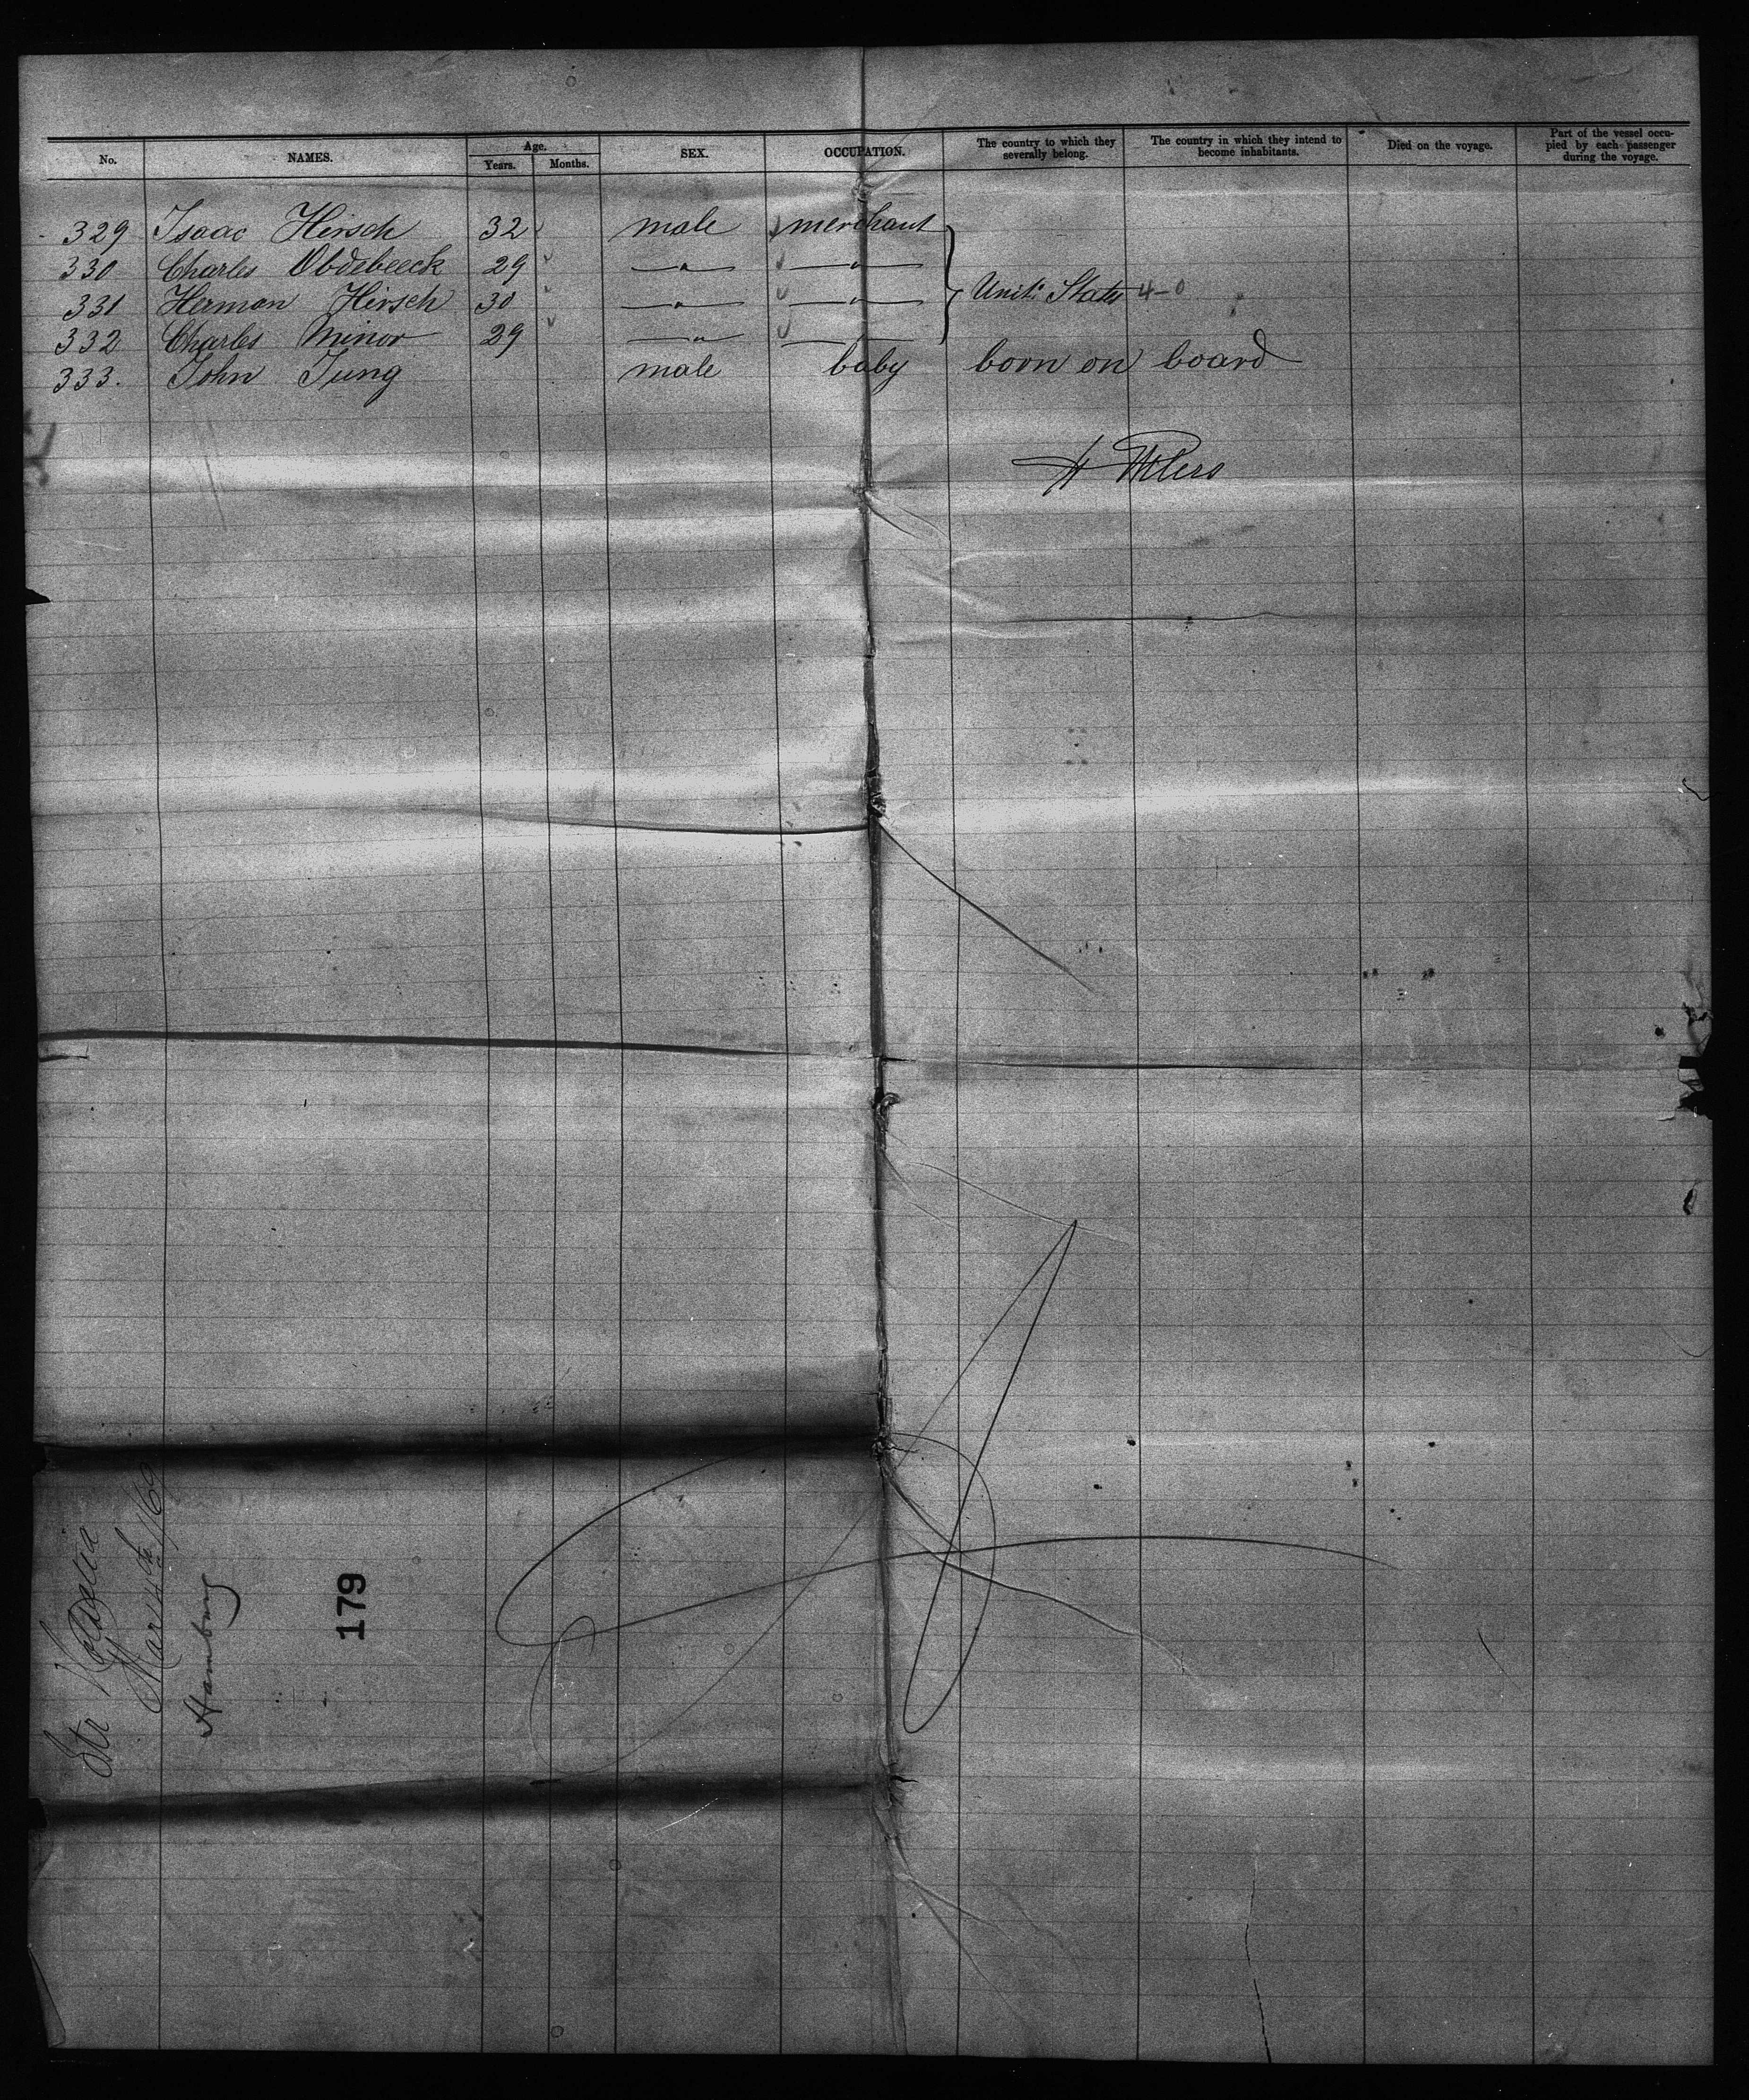 No. NAMES. Age. Years. Months. SEX. OCCUPATION. The country to which they severally belong. The country in which they intend to become inhabitants. Died on the voyage. Part of the vessel occupied by each passenger during the voyage.
329 Isaac Hirsch 32 male merchant
330 Charles Obdebeeck 29 — " — — " —
331 Herman Hirsch 30 — " — — " — Unit: States 4-0
332 Charles Minor 29 — " — — " —
333. John Jung male baby born on board
Str
Mar 14th
Hamburg
179